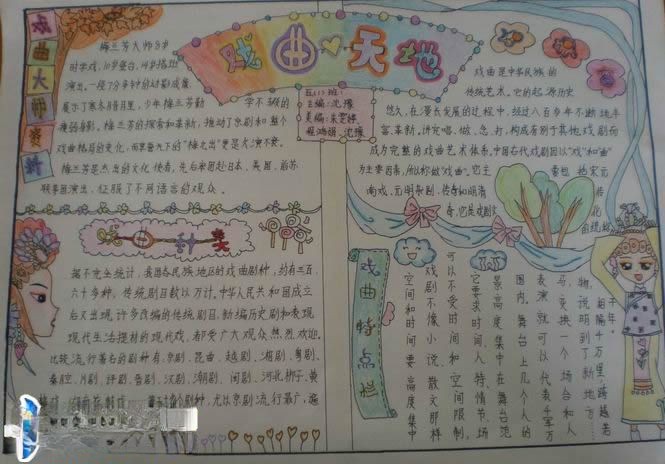 戏曲大师资料
戏曲天地
梅兰芳大师8岁
时学戏，10岁登台，14岁搭班
演出。一段7分钟的动影成章
展示了寒冬腊月里，少年梅兰芳勤 学不辍的
瘦弱身影。梅兰芳的探索和革新，推动了京剧和整个
戏曲格局的变化，而享誉天下的“梅之出”更是大演不衰。
梅兰芳是杰出的文化使者，先后率团赴日本、美国、前苏
联等国演出，征服了不同语言的观众。
五(1)班：
主编：沈璨
美编：
沈璨
戏曲是中华民族的
传统艺术。它的起源历史
悠久，在漫长发展的过程中，经过八百多年不断地丰
富、革新，讲究唱、做、念、打，构成有别于其他戏剧而
成为完整的戏曲艺术体系，中国古代戏剧因以“戏”和“曲”
为主要因素，所以称做“戏曲”。它主 要包括宋元
南戏、元明杂剧、传奇和明清 传
奇，它是戏剧文 北
戏曲种类
据不完全统计，我国各民族地区的戏曲剧种，约有三百
六十多种，传统剧目数以万计。中华人民共和国成立
后又出现许多改编的传统剧目，新编历史剧和表现
现代生活提材的现代戏，都受广大观众热烈欢迎。
比较流行著名的剧种有：京剧、昆曲、越剧、湘剧、粤剧、
秦腔、川剧、评剧、晋剧、汉剧、潮剧、闽剧、河北梆子、黄
梅戏 等 个剧种，尤以京剧流行最广，遍
戏曲特点栏
千年”，
“相隔千万里，跨越若
物，说明到了新地方……
马，变换一个场合和人
表演就可以代表千军万
围内。舞台上几个人的
景高度集中在舞台范
它要求时间、人特、情节、场
可以不受时间和空间限制，
戏剧不像小说、散文那样
空间和时间要高度集中